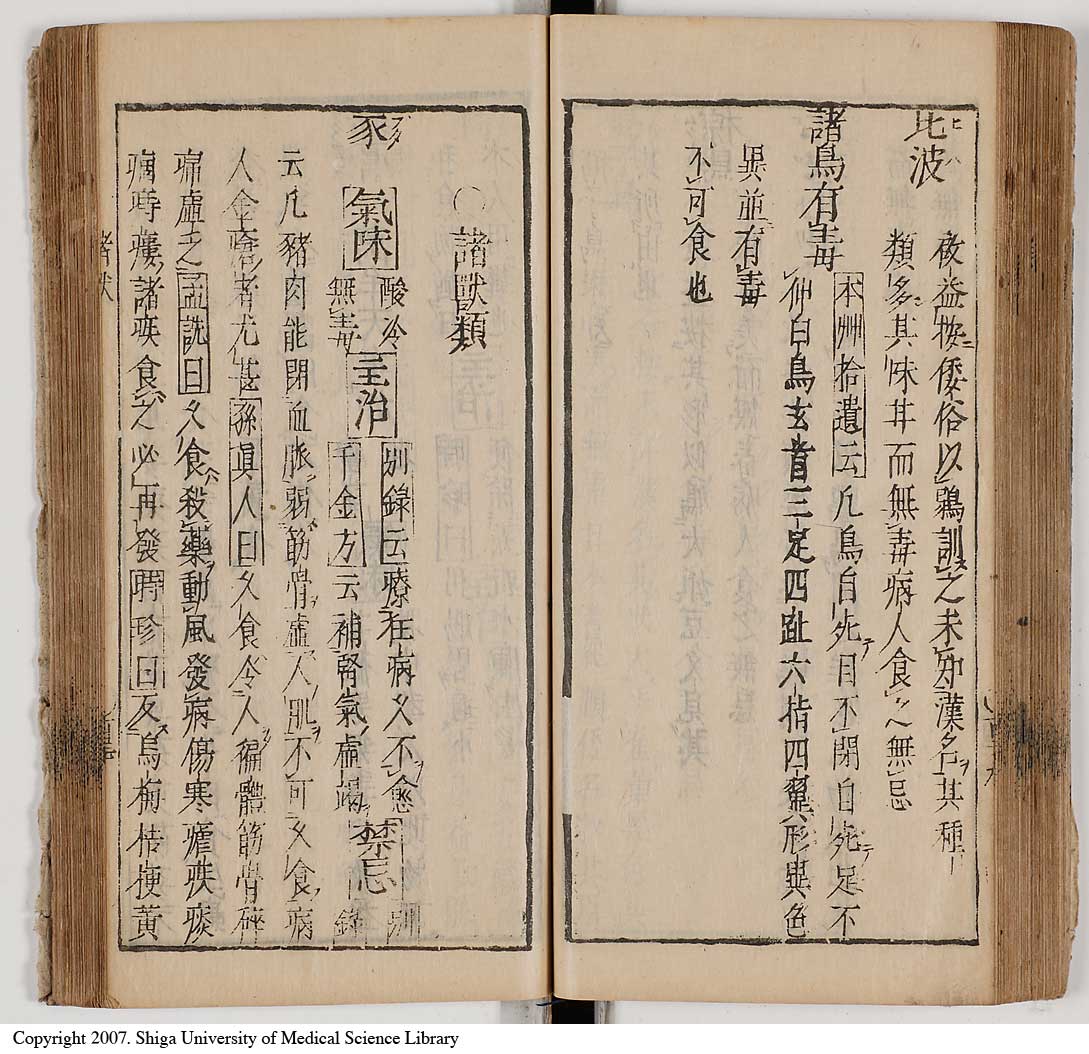 比波
夜益按倭俗以鶏訓之未知漢名其種
類多其味甘而無毒病人食之無忌
諸鳥有毒
本州拾遺云凡鳥自死目不閉自死足不
伸白鳥玄首三足四趾六指四翼異形異色
異並有毒
不可食也
○諸獣類
豕
氣味
酸冷
無毒
主治
別録云療狂病久不愈
千金方云補腎氣虚竭
禁忌
別
録
云凡豬肉能閉血脈弱筋骨虚人肌不可久食病
人金瘡者尤甚孫真人曰久食令人徧體筋骨碎
痛虚乏孟詵曰久食殺藥動風發病傷寒瘧疾痰
痼痔瘻諸疾食之必再發時珍曰反烏梅桔梗黄
諸獣
Copyright 2007. Shiga University of Medical Science Library